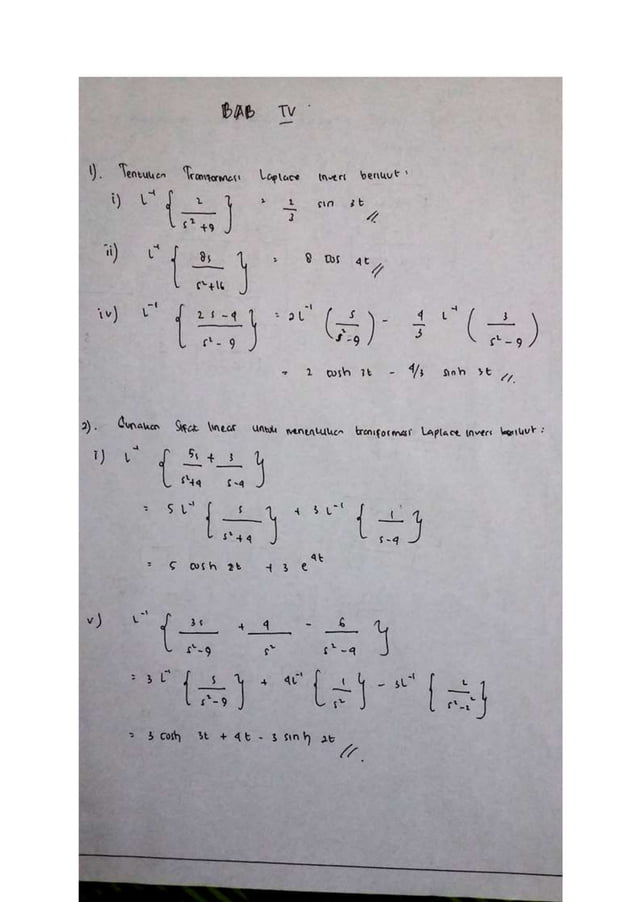 BAB IV
1). Tentukan Transformasi Laplace invers berikut :
i) L⁻¹ { 2 / s² + 9 } = 2/3 sin 3t //
ii) L⁻¹ { 8s / s² + 16 } = 8 cos 4t //
iv) L⁻¹ { 2s - 4 / s² - 9 } = 2L⁻¹ ( s / s² - 9 ) - 4/3 L⁻¹ ( 3 / s² - 9 )
= 2 cosh 3t - 4/3 sinh 3t //.
2). Gunakan Sifat linear untuk menentukan transformasi Laplace invers berikut :
i) L⁻¹ { 5s / s² + 4 + 3 / s - 4 }
= 5 L⁻¹ { s / s² + 4 } + 3 L⁻¹ { 1 / s - 4 }
= 5 cosh 2t + 3 e⁴ᵗ
v) L⁻¹ { 3s / s² - 9 + 4 / s² - 6 / s² - 4 }
= 3 L⁻¹ { s / s² - 9 } + 4L⁻¹ { 1 / s² } - 3L⁻¹ { 2 / s² - 2² }
= 3 cosh 3t + 4t - 3 sinh 2t //.